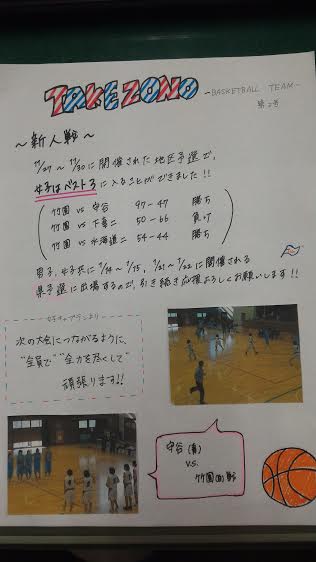 TAKEZONO
-BASKETBALL TEAM-
第2号
～新人戦～
11/27～11/30に開催された地区予選で、
女子はベスト3に入ることができました!!
竹園 vs 守谷 97-47 勝ち
竹園 vs 下妻二 50-66 負け
竹園 vs 水海道二 54-44 勝ち
男子、女子共に1/14～1/15、1/21～1/22に開催される
県予選に出場するので、引き続き応援よろしくお願いします!!
女子キャプテンより
次の大会につながるように、
"全員で" "全力を尽くして"
頑張ります!!
守谷(青)
vs.
竹園(白)戦